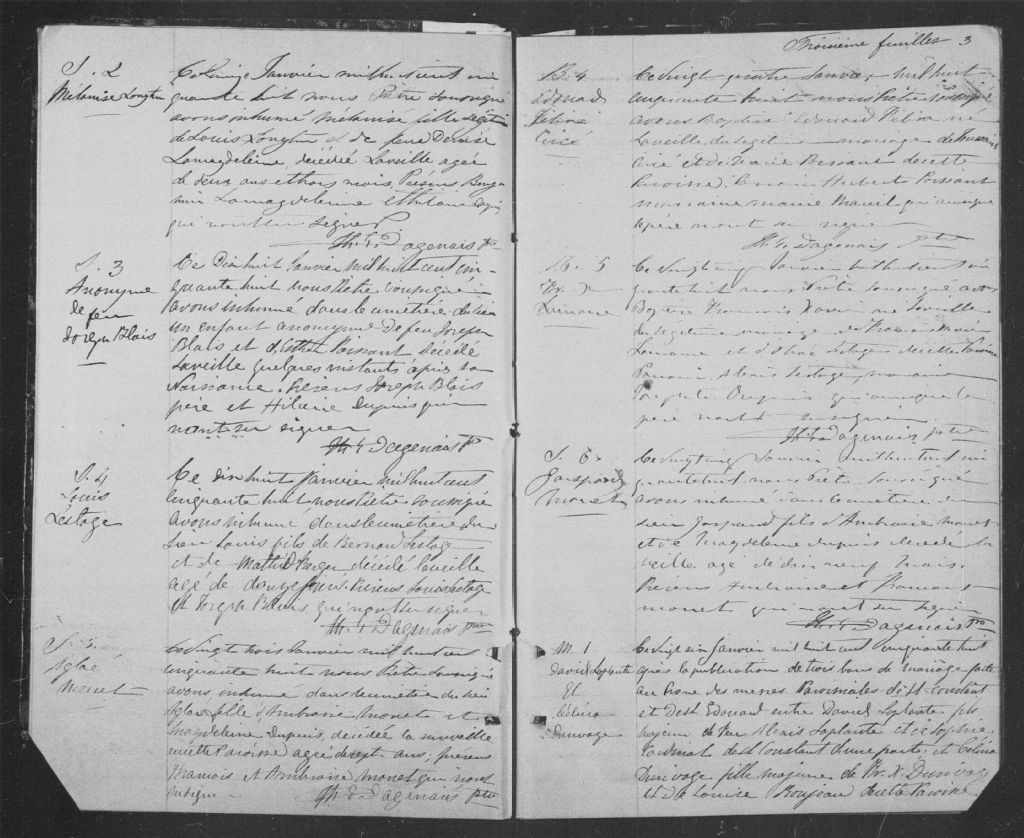 S. 2
Mélanise Longtin
Ce Quinze Janvier mil huit cent cin
quante huit nous Prêtre soussigné
avons inhumé mélanise fille Légitime
de Louis Longtin et de feue Denise
Lamagdeleine décédé Laveille agée
de deux ans et trois mois. Présens Benja
min Lamagdeleine et hilaire Dupuis
qui nont su signer
Th. G. Dagenais Ptre
S. 3
Anonyme
de feu
Joseph Blais
Ce Dix huit Janvier mil huit cent cin-
quante huit nous Prêtre soussigné
avons inhumé dans le cimetière du lieu
un enfant anonyme de feu Joseph
Blais et d'Esther Poissant décédé
Laveille quelques instants après sa
Naissance. Présens Joseph Blais
père et Hilaire Dupuis qui
nont su signer
Th. G. Dagenais Ptre
S. 4
Louis
Léstage
Ce dix huit Janvier mil huit cent
cinquante huit nous Prêtre soussigné
avons inhumé dans le cimetière du
lieu Louis fils de Bernard Lestage
et de décédé laveille
agé de douze jours. Présens Louis Lestage
et Joseph qui nont su signer
Th. G. Dagenais Ptre
S. 5
Aglaé
Monet
Ce vingt trois Janvier mil huit cent
cinquante huit nous Prêtre soussigné
avons inhumé dans le cimetière du lieu
Aglaé fille d'Ambroise Monet et
Magdeleine Dupuis, décédée la surveille
en cette Paroisse agée de sept ans; présens
Francois et Ambroise Monet qui nont
su signer
Th. G. Dagenais Ptre
Troisième feuillet 3
B. 4
Edouard
Ciré
Ce vingt quatre Janvier mil huit
cinquante huit nous Prêtre soussigné
avons Baptisé Edouard né
Laveille du légitime mariage de
Ciré et de Marie Bessant de cette
Paroisse. Parrain Hubert Poissant
marraine marie qui ainsi que
le père nont su signer
Th. G. Dagenais Ptre
B. 5
Fr. X.
Ce vingt cinq Janvier mil huit cent cin
quante huit nous Prêtre soussigné avons
Baptisé Francois Xavier né Laveille
du légitime mariage de
et d' Lestage de cette Paroisse
Parrain Alexis Lestage, marraine
Dupuis qui ainsi que le
père nont su signer
Th. G. Dagenais Ptre
S. 6
Gaspard
Monet
Ce vingt cinq Janvier mil huit cent cin
quante huit nous Prêtre soussigné
avons inhumé dans le cimetière du
lieu Gaspard fils d'Ambroise Monet
et de Magdeleine Dupuis décédé la
veille agé de dix neuf mois.
Présens Ambroise et Francois
Monet qui nont su signer
Th. G. Dagenais Ptre
M. 1
David Laplante
Et
Célina
Dunivage
Ce vingt six Janvier mil huit cent cinquante huit
après la publication de trois bans de mariage faite
au Prone des messes Paroissiales de St. Constant
et de St. Edouard entre David Laplante fils
majeur de feu Alexis Laplante et de Sophie
de St. Constant d'une part; et Célina
Dunivage fille majeure de Fr. X. Dunivage
et de Louise de cette Paroisse